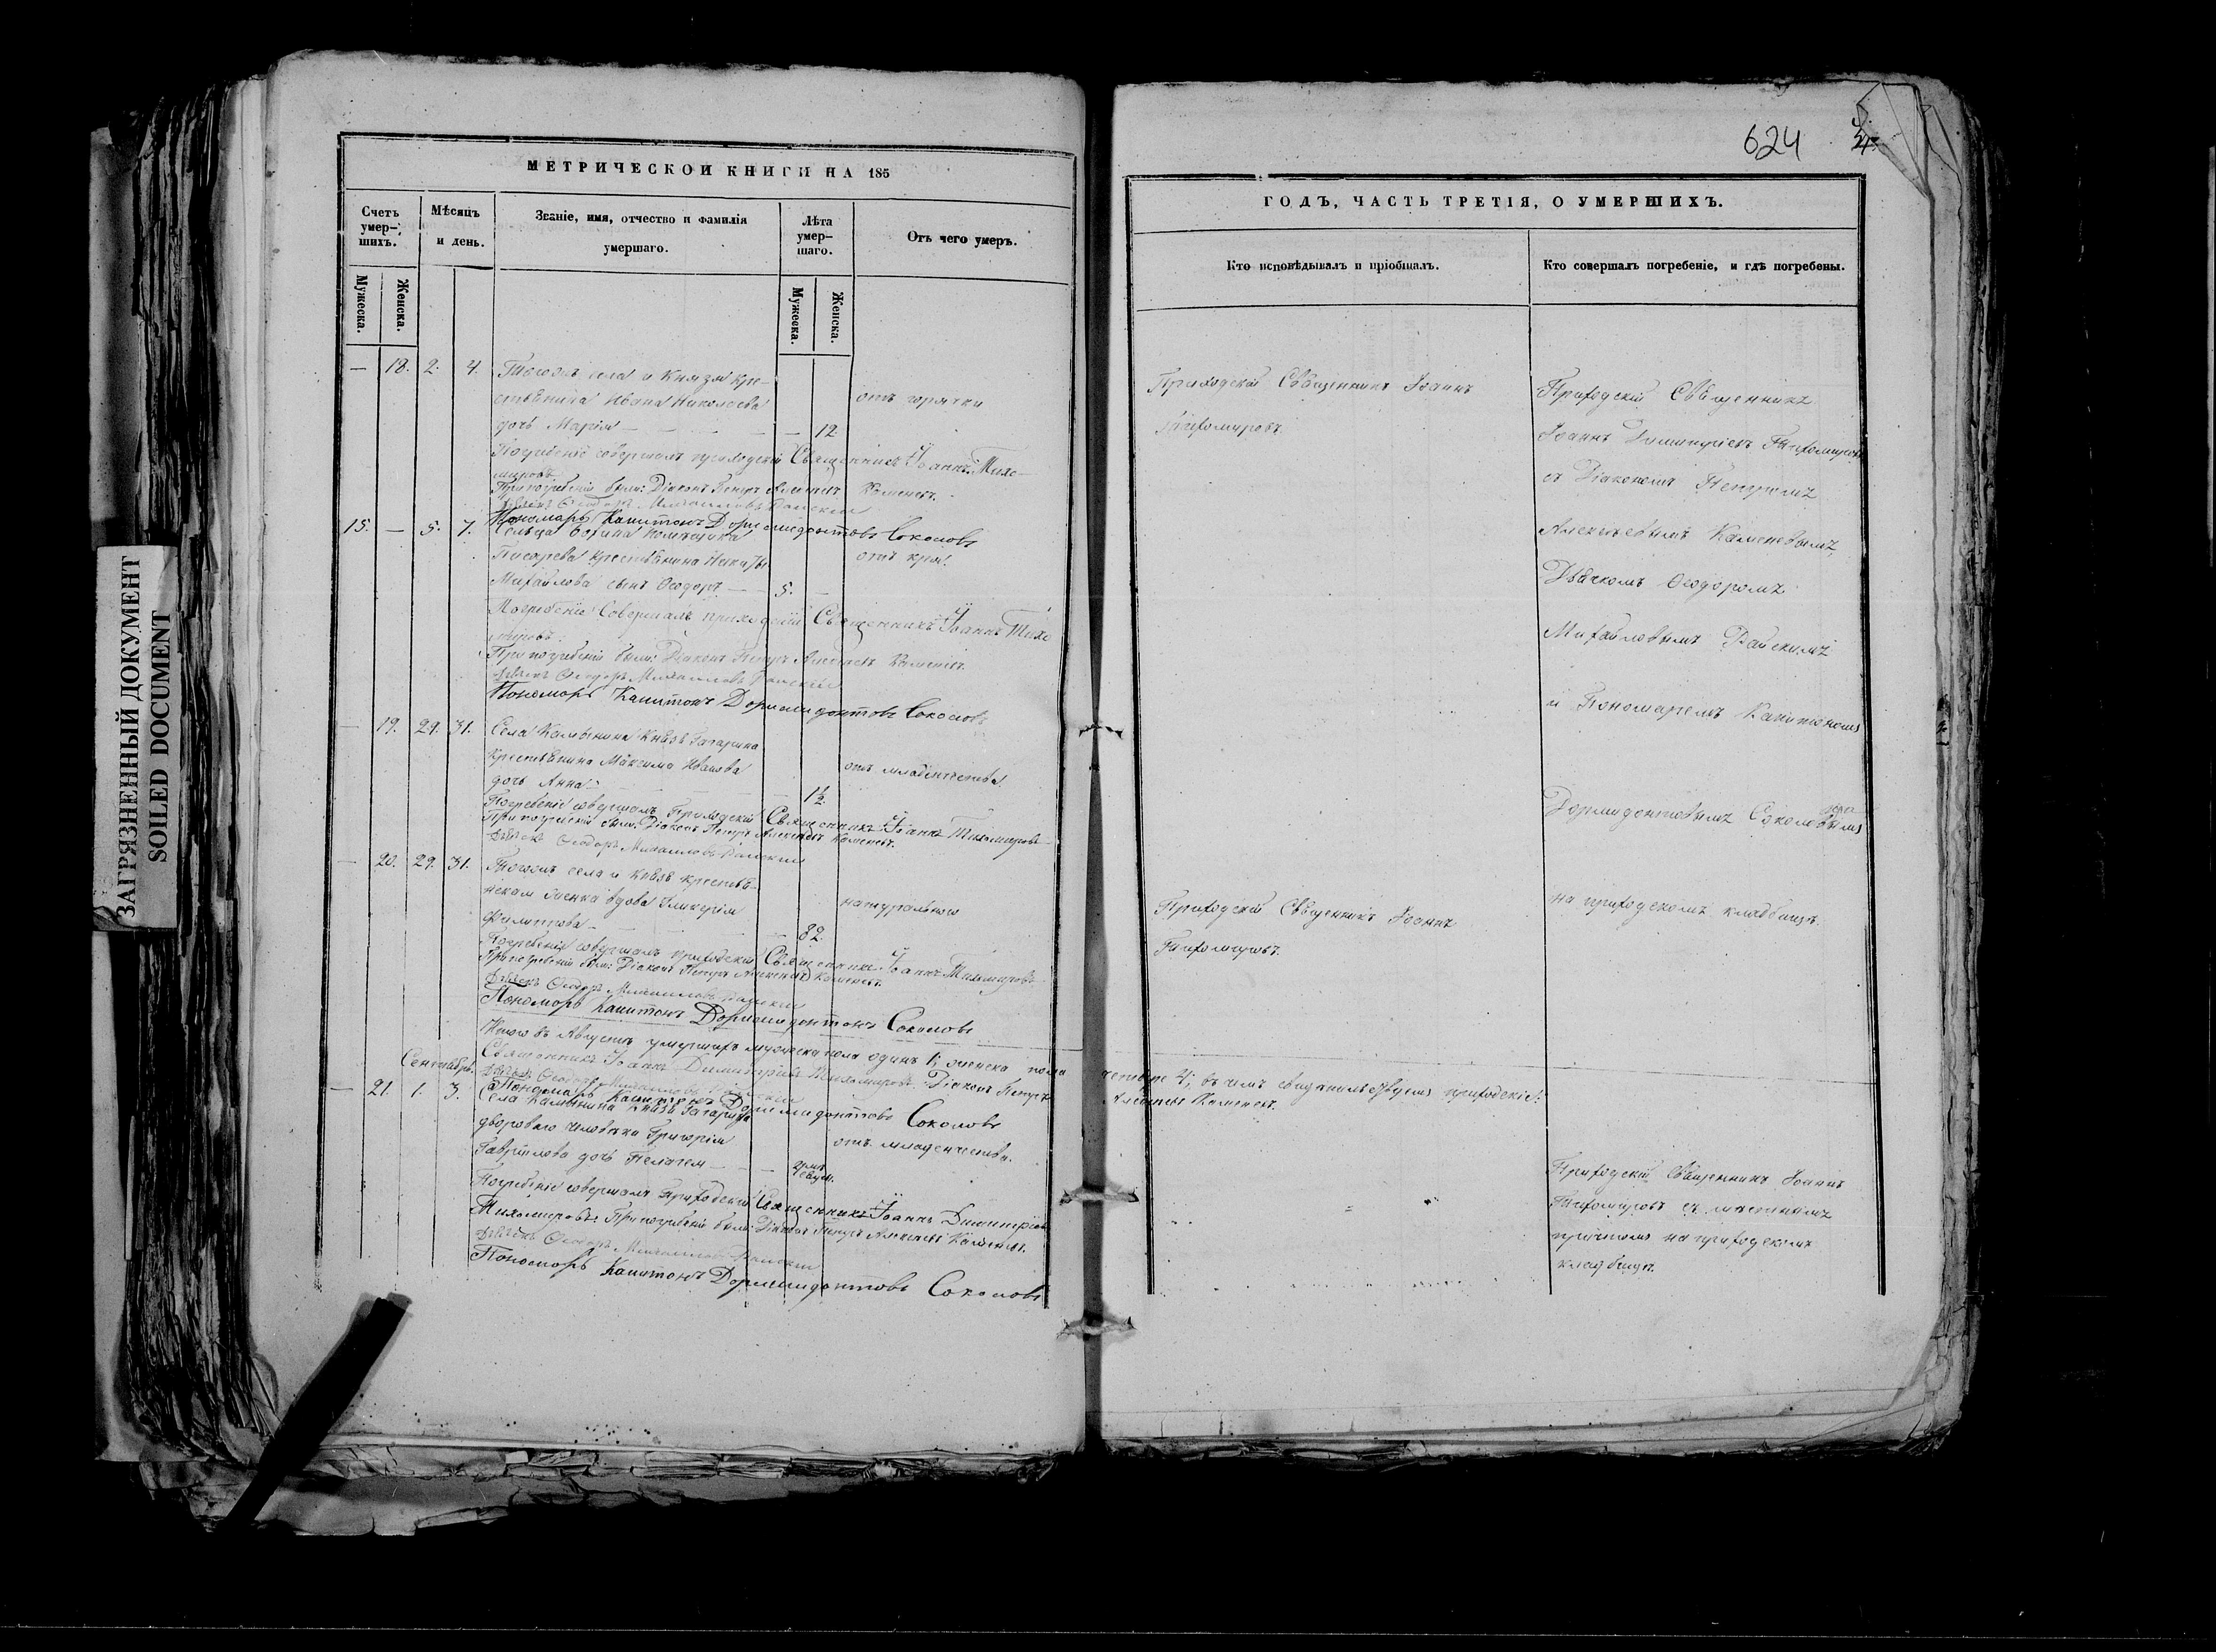 ЗАГРЯЗНЕННЫЙ ДОКУМЕНТ
SOILED DOCUMENT
МЕТРИЧЕСКОЙ КНИГИ НА 185
Счетъ умер-шихъ.
Мѣсяцъ и день.
Званіе, имя, отчество и фамилія умершаго.
Лѣта умер-шаго.
Отъ чего умеръ.
Мужеска.
Женска.
Мужеска.
Женска.
— 18. 2. 4. Тогожъ села и Князя кре-
стьянина Ивана Николаева отъ горячки
дочь Марія — — 12.
Погребеніе совершалъ приходскій Священникъ Іоаннъ Тихо-
мировъ.
При погребеніи были: Діаконъ Петръ Алексѣевъ Каменевъ.
Дьячекъ Ѳеодоръ Михайловъ Райскій
Пономарь Капитонъ Дормидонтовъ Соколовъ
15. — 5. 7. Сельца помѣщика
Писарева крестьянина отъ
Михайлова сынъ Ѳеодоръ — 5.
Погребеніе Совершалъ приходскій Священникъ Іоаннъ Тихо
мировъ.
При погребеніи были: Діаконъ Петръ Алексѣевъ Каменевъ.
Дьячекъ Ѳеодоръ Михайловъ Райскій
Пономарь Капитонъ Дормидонтовъ Соколовъ
— 19. 29. 31. Села Камынина Князя Гагарина
Крестьянина Максима Иванова отъ младенчества
дочь Анна — 1½
Погребеніе совершалъ Приходскій Священникъ Іоаннъ Тихомировъ
При погребеніи были: Діаконъ Петръ Алексѣевъ Каменевъ.
Дьячекъ Ѳеодоръ Михайловъ Райскій
— 20. 29. 31. Тогожъ села и Князя крестья-
вдова Гликерія натурально
Филиппова — 82.
Погребеніе совершалъ приходскій Священникъ Іоаннъ Тихомировъ
При погребеніи были: Діаконъ Петръ Алексѣевъ Каменевъ.
Дьячекъ Ѳеодоръ Михайловъ Райскій
Пономарь Капитонъ Дормидонтовъ Соколовъ
Итого въ Августѣ умершихъ мужеска пола одинъ 1; женска пола
Священникъ Іоаннъ Димитріевъ Тихомировъ. Діаконъ Петръ
Сентябрь.
Дьячекъ Ѳеодоръ Михайловъ Райскій
Пономарь Капитонъ Дормидонтовъ Соколовъ
— 21. 1. 3. Села Камынина Князя Гагарина
двороваго человѣка Григорія отъ младенчества.
Гаврилова дочь Пелагея —
Погребеніе совершалъ Приходскій Священникъ Іоаннъ Димитріевъ
Тихомировъ. При погребеніи были: Діаконъ Петръ Алексѣевъ Каменевъ.
Дьячекъ Ѳеодоръ Михайловъ Райскій
Пономарь Капитонъ Дормидонтовъ Соколовъ
624
ГОДЪ, ЧАСТЬ ТРЕТІЯ, О УМЕРШИХЪ.
Кто исповѣдывалъ и пріобщалъ.
Кто совершалъ погребеніе, и гдѣ погребены.
Приходскій Священникъ Іоаннъ
Тихомировъ.
Приходскій Священникъ
Іоаннъ Димитріевъ Тихомировъ
съ Діакономъ Петромъ
Алексѣевымъ Каменевымъ,
Дьячкомъ Ѳеодоромъ
Михайловымъ Райскимъ
и Пономаремъ Капитономъ
Дормидонтовымъ Соколовымъ
на приходскомъ кладбищѣ.
Приходскій Священникъ Іоаннъ
Тихомировъ.
четыре 4; въ чемъ свидѣтельствуемъ приходскіе:
Алексѣевъ Каменевъ.
Приходскій Священникъ Іоаннъ
Тихомировъ съ
причтомъ на приходскомъ
кладбищѣ.